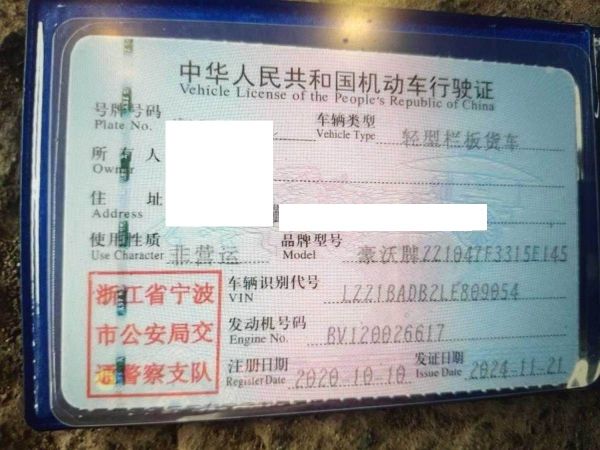 中华人民共和国机动车行驶证
Vehicle License of the People's Republic of China
号牌号码 车辆类型 轻型栏板货车
Plate No. Vehicle Type
所有人
Owner
住址
Address
使用性质 非营运 品牌型号 豪沃牌ZZ1047F3315E145
Use Character Model
浙江省宁波
市公安局交
通警察支队
车辆识别代号 LZZ1BADB2LE809054
VIN
发动机号码 BV120026617
Engine No.
注册日期 2020-10-10 发证日期 2024-11-21
Register Date Issue Date